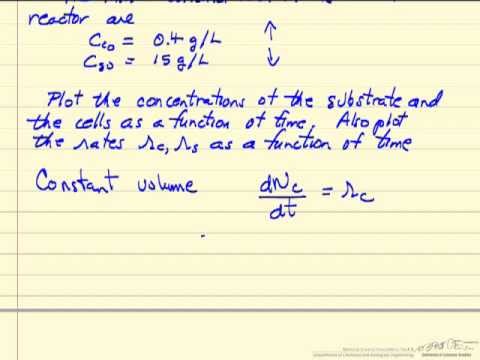 reactor are
Cc0 = 0.4 g/L ↑
Cs0 = 15 g/L ↓
Plot the concentrations of the substrate and
the cells as a function of time. Also plot
the rates rc, rs as a function of time
Constant volume dNc/dt = rc